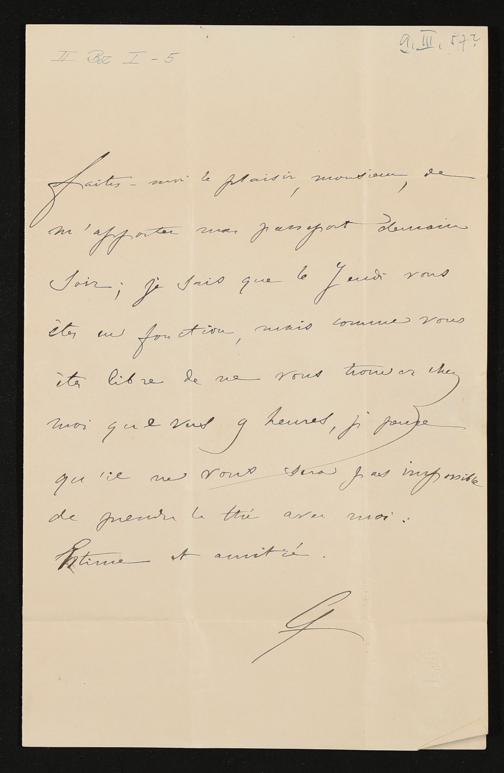 II Bz I - 5
9. III. 57?
faites-moi le plaisir, monsieur, de
m'apporter mon passeport demain
soir; je sais que le Jeudi vous
êtes en fonction, mais comme vous
êtes libre de ne vous trouver chez
moi que vers 9 heures, je pense
qu'il ne vous sera pas impossible
de prendre le thé avec moi.
Estime et amitié.
G